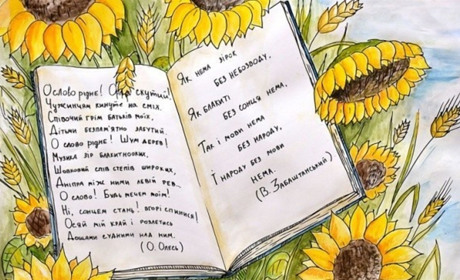 О слово рідне! Орле скутий!
Чужинцям кинуте на сміх!
Співочий грім батьків моїх,
Дітьми безпам'ятно забутий.
О слово рідне! Шум дерев!
Музика зір блакитнооких,
Шовковий спів степів широких,
Дніпра між ними левій рев...
О слово! Будь мечем моїм!
Ні, сонцем стань! вгорі спинися!
Осяй мій край і розлетись
Дощами судними над ним.
(О. Олесь)
Як нема зірок
без небозводу,
Як блакиті
без сонця нема,
Так і мови нема
без народу,
І народу без мови
нема.
(В. Забаштанський)